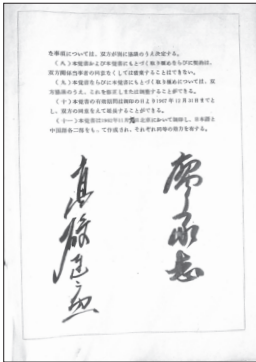 な事項については、双方が別に協議のうえ決定する。
(八)本覚書および本覚書にもとづく取り極めならびに契約は、
双方関係当事者の同意なくしては破棄することはできない。
(九)本覚書ならびに本覚書にもとづく取り極めについては、双
方協議のうえ、これを修正しまたは補足することができる。
(十)本覚書の有効期間は調印の日より1967年12月31日までと
し、双方の同意をえて延長することができる。
(十一)本覚書は1962年11月9日北京において調印し、日本語と
中国語各二部をもって作成され、それぞれ同等の効力を有する。
高碕達之助
廖承志